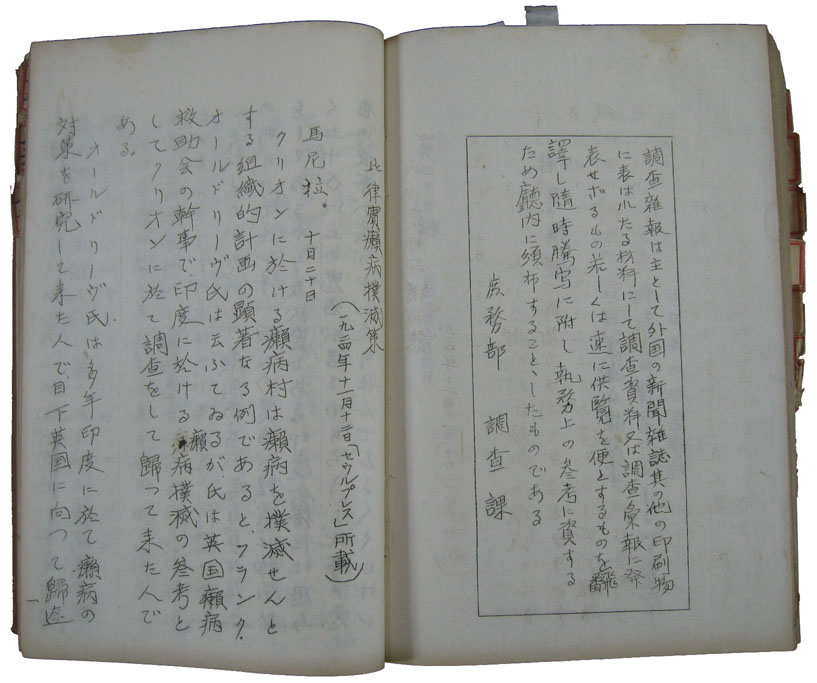 調査雑報は主として外国の新聞雑誌其の他の印刷物
に表はれたる材料にして調査資料又は調査彙報に発
表せざるもの若しくは速に供覧を便とするものを翻
譯し随時騰写に附し執務上の参考に資する
ため廳内に頒布することゝしたものである
庶務部 調査課
比律賓癩病撲滅策
(一九二四年十一月十二日「セウルプレス」所載)
馬尼拉。十月二十日
クリオンに於ける癩病村は癩病を撲滅せんと
する組織的計画の顕著なる例であるとフランク.
オールドリーヴ氏は云ふてゐるが氏は英国癩病
救助会の幹事で印度に於ける癩病撲滅の参考と
してクリオンに於て調査をして帰つて来た人で
ある.
オールドリーヴ氏は多年印度に於て癩病の
対策を研究して来た人で目下英国に向つて歸途